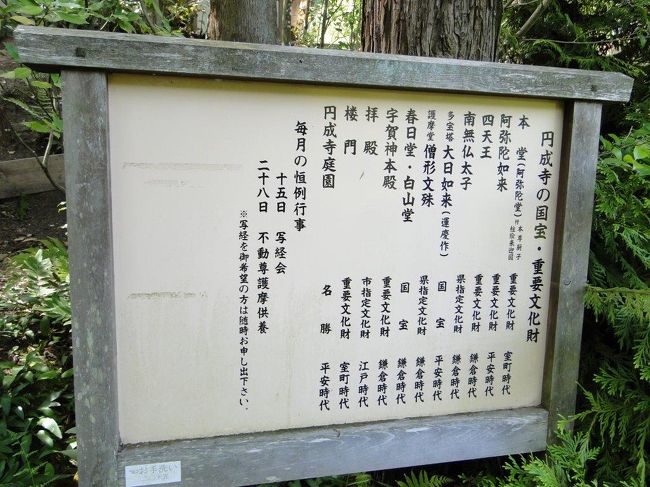 円成寺の国宝・重要文化財
本堂(阿弥陀堂)付本尊厨子 柱絵来迎図 重要文化財 室町時代
阿弥陀如来 重要文化財 平安時代
四天王 重要文化財 鎌倉時代
南無仏太子 県指定文化財 鎌倉時代
多宝塔 大日如来(運慶作) 国宝 平安時代
護摩堂 僧形文殊 県指定文化財 鎌倉時代
春日堂・白山堂 国宝 鎌倉時代
宇賀神本殿 重要文化財 鎌倉時代
拝殿 市指定文化財 江戸時代
楼門 重要文化財 室町時代
円成寺庭園 名勝 平安時代
毎月の恒例行事
十五日 写経会
二十八日 不動尊護摩供養
※写経を御希望の方は随時お申し出下さい。
お手洗い